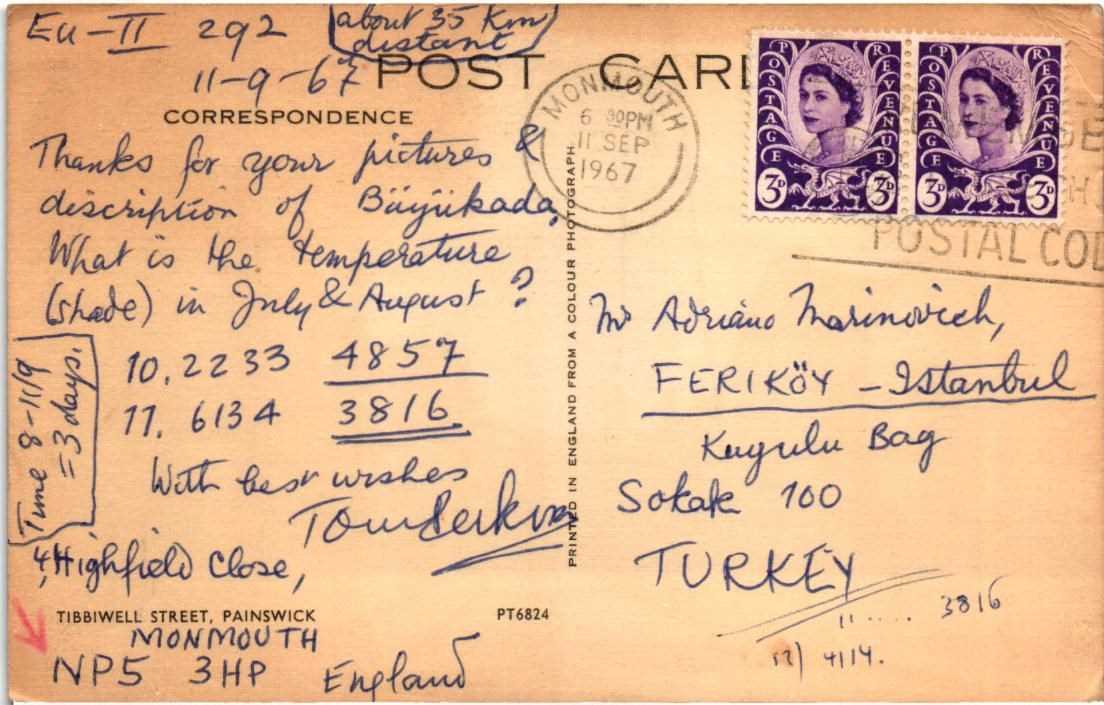 Eu-II 292
(about 35 Km
distant)
11-9-67
POST CARD
CORRESPONDENCE
Thanks for your pictures &
discription of Büyükada.
What is the temperature
(shade) in July & August?
10. 2233 4857
11. 6134 3816
Time 8-11/9
= 3 days.
With best wishes
Tom
4, Highfield Close,
TIBBIWELL STREET, PAINSWICK
PT6824
MONMOUTH
NP5 3HP England
PRINTED IN ENGLAND FROM A COLOUR PHOTOGRAPH
MONMOUTH
6 30PM
11 SEP
1967
POSTAGE REVENUE
3D 3D
POSTAGE REVENUE
3D 3D
POSTAL COD
Mr Adriano Marinovich,
FERIKÖY - Istanbul
Kuyulu Bag
Sokak 100
TURKEY
11 ..... 3816
12) 4114.